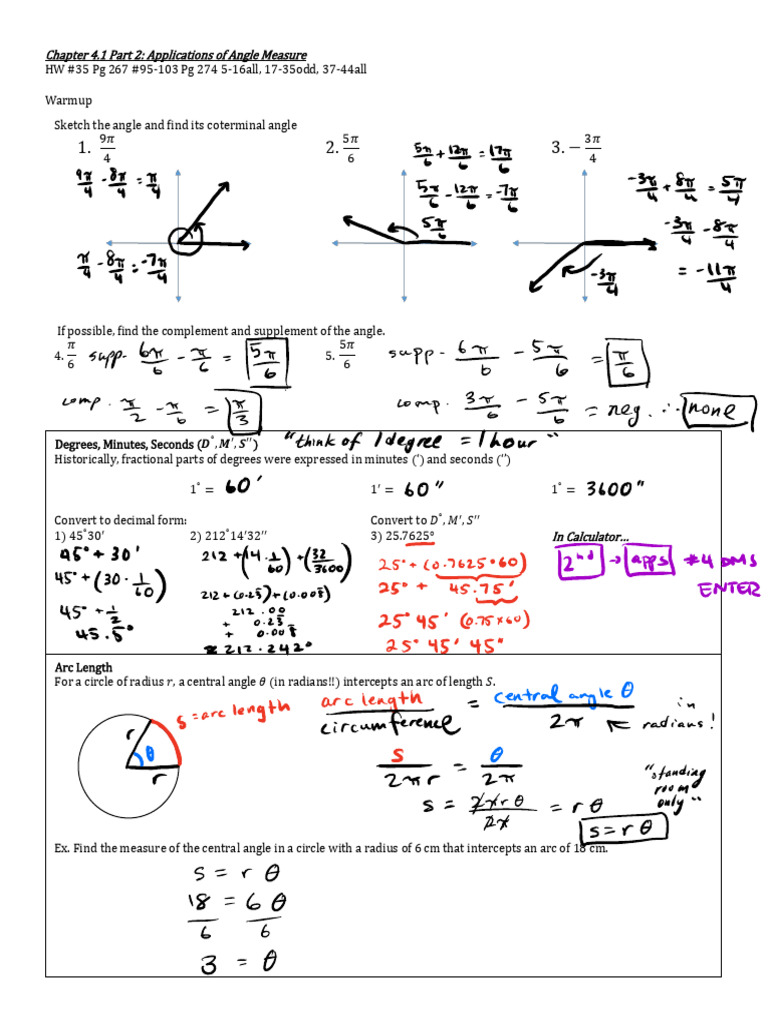 Chapter 4.1 Part 2: Applications of Angle Measure
HW #35 Pg 267 #95-103 Pg 274 5-16all, 17-35odd, 37-44all
Warmup
Sketch the angle and find its coterminal angle
1. 9π/4
9π/4 - 8π/4 = π/4
π/4 - 8π/4 = -7π/4
2. 5π/6
5π/6 + 12π/6 = 17π/6
5π/6 - 12π/6 = -7π/6
5π/6
3. -3π/4
-3π/4 + 8π/4 = 5π/4
-3π/4 - 8π/4
= -11π/4
-3π/4
If possible, find the complement and supplement of the angle.
4. π/6
supp- 6π/6 - π/6 = 5π/6
comp. π/2 - π/6 = π/3
5. 5π/6
supp- 6π/6 - 5π/6 = π/6
comp. 3π/6 - 5π/6 = neg. ∴ none
Degrees, Minutes, Seconds (D°, M′, S′′)
"think of 1 degree = 1 hour"
Historically, fractional parts of degrees were expressed in minutes (′) and seconds (′′)
1° = 60′
1′ = 60″
1° = 3600″
Convert to decimal form:
1) 45°30′
45° + 30′
45° + (30 · 1/60)
45° + 1/2
45.5°
2) 212°14′32′′
212 + (14 · 1/60) + (32/3600)
212 + (0.23̅) + (0.008̅)
212.00
+ 0.23̅
+ 0.008̅
≈ 212.242°
Convert to D°, M′, S′′
3) 25.7625°
25° + (0.7625 · 60)
25° + 45.75′
25° 45′ (0.75×60)
25° 45′ 45″
In Calculator...
2nd → apps #4 DMS
ENTER
Arc Length
For a circle of radius r, a central angle θ (in radians!!) intercepts an arc of length S.
s = arc length
r
θ
r
arc length / circumference = central angle θ / 2π
in
radians!
s / 2πr = θ / 2π
s = 2πrθ / 2π = rθ
"standing
room
only"
s = rθ
Ex. Find the measure of the central angle in a circle with a radius of 6 cm that intercepts an arc of 18 cm.
s = r θ
18 = 6 θ
6 6
3 = θ